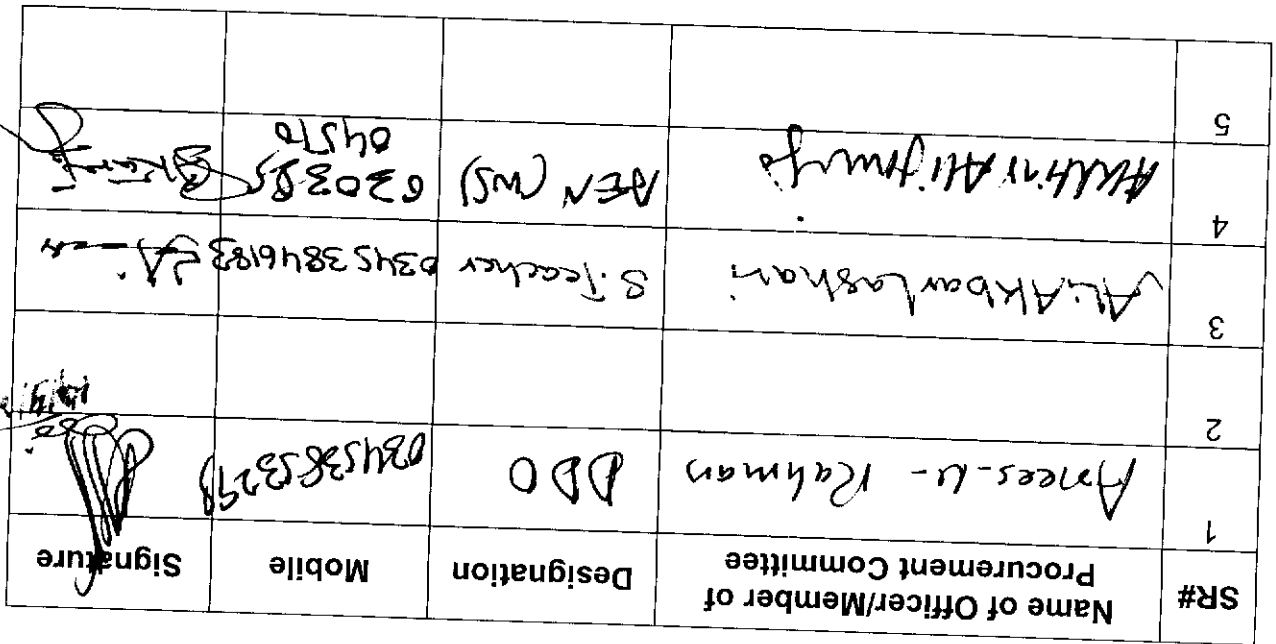 SR# Name of Officer/Member of Procurement Committee Designation Mobile Signature
1 Anees-U-Rahman DDO
2
3 Ali Akbar Lashari S.Teacher 03453846183
4 Ali AEN (WS) 630385
04510
5